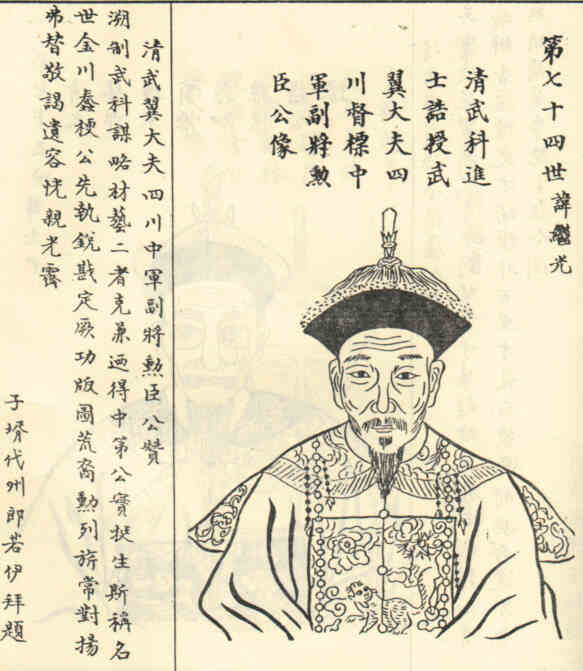 第七十四世 諱繼光
清武科進
士誥授武
翼大夫四
川督標中
軍副將勲
臣公像
清武翼大夫四川中軍副將勲臣公贊
溯制武科謀略材藝二者克兼迺得中第公實挺生斯稱名
世金川蠢梗公先執銳戡定厥功版圖荒裔勲列旂常對揚
弗替敬謁遺容恍親光霽
子壻代州郎若伊拜題